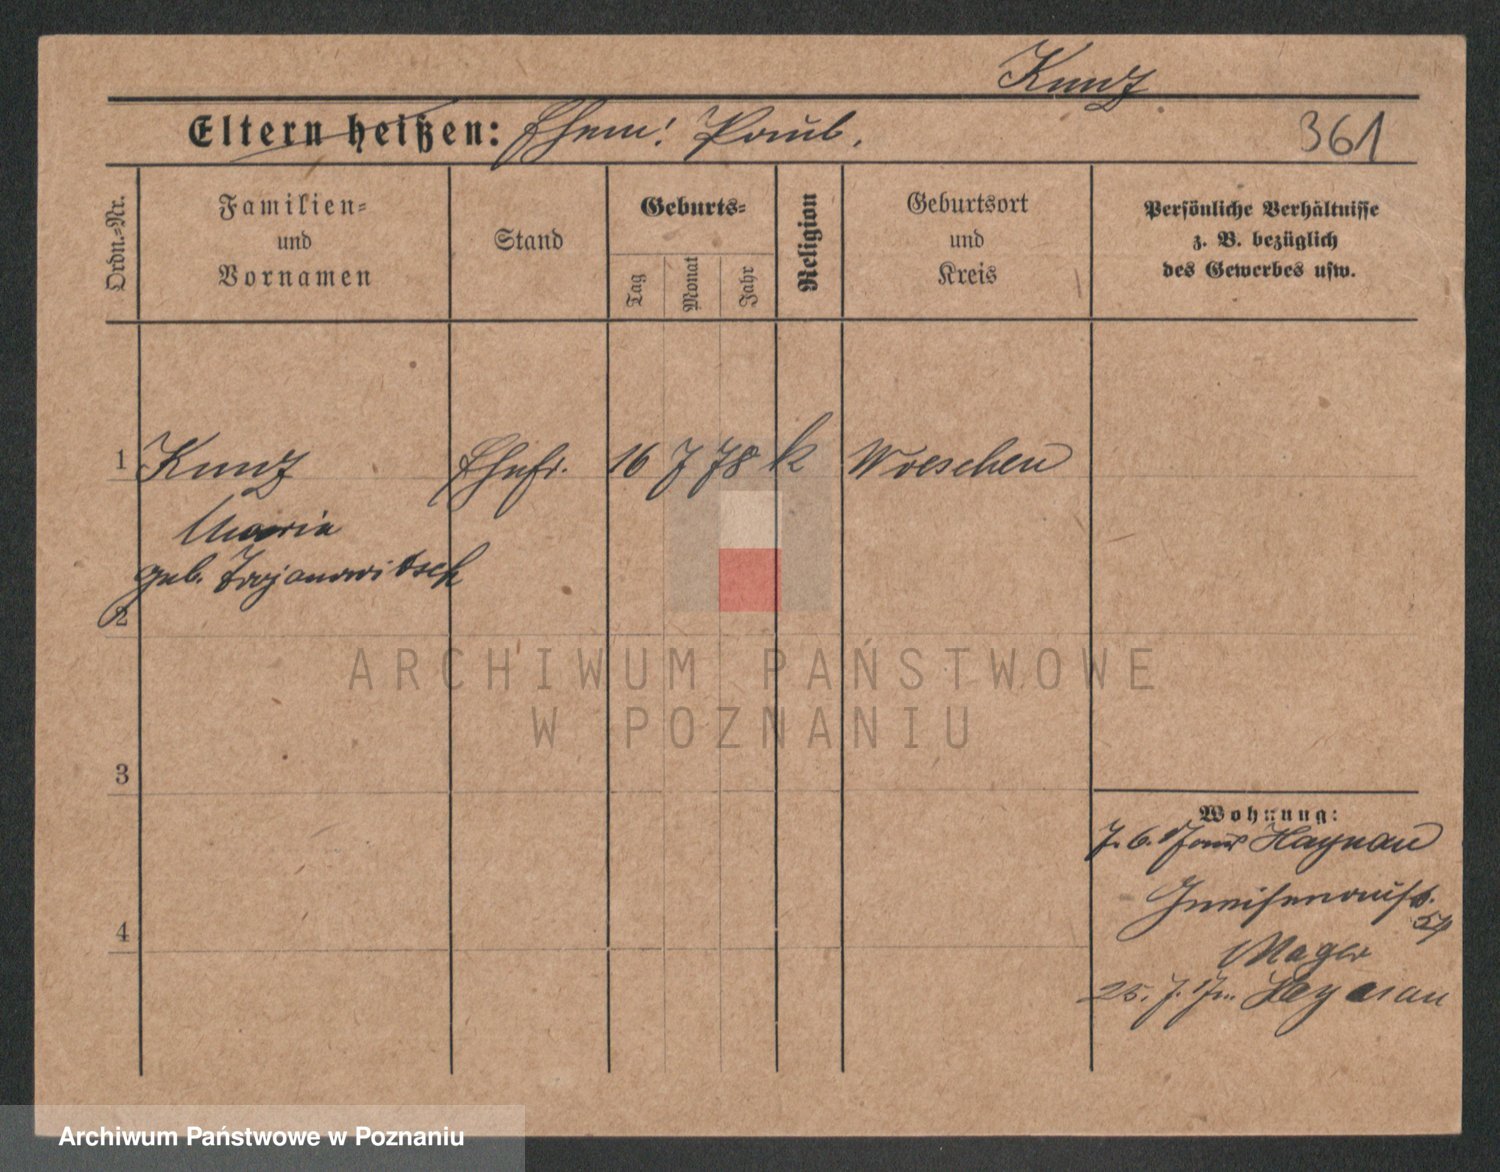 Kunz
Eltern heißen: Ehem: Paul.
361
Ordn.-Nr.
Familien-
und
Vornamen
Stand
Geburts-
Tag
Monat
Jahr
Religion
Geburtsort
und
Kreis
Persönliche Verhältnisse
z. B. bezüglich
des Gewerbes usw.
1 Kunz Ehefr. 16 7 78 k Wreschen
Maria
geb. Trojanowitsch
2
ARCHIWUM PAŃSTWOWE
W POZNANIU
3
Wohnung:
7. 6. Haynau
Gneisenaustr.
Mager
4
25. 7. Haynau
Archiwum Państwowe w Poznaniu